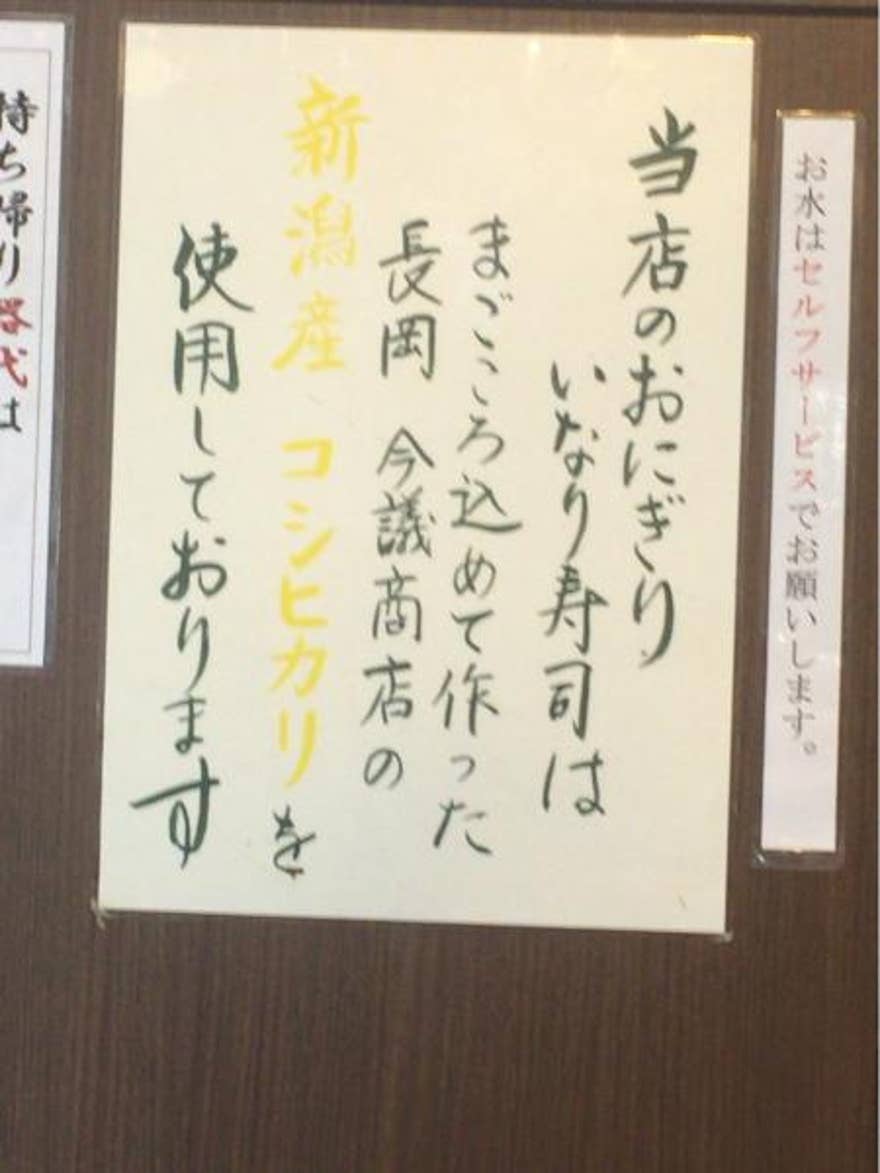 お水はセルフサービスでお願いします。
当店のおにぎり
いなり寿司は
まごころ込めて作った
長岡 今議商店の
新潟産 コシヒカリを
使用しております
持ち帰り容器代は